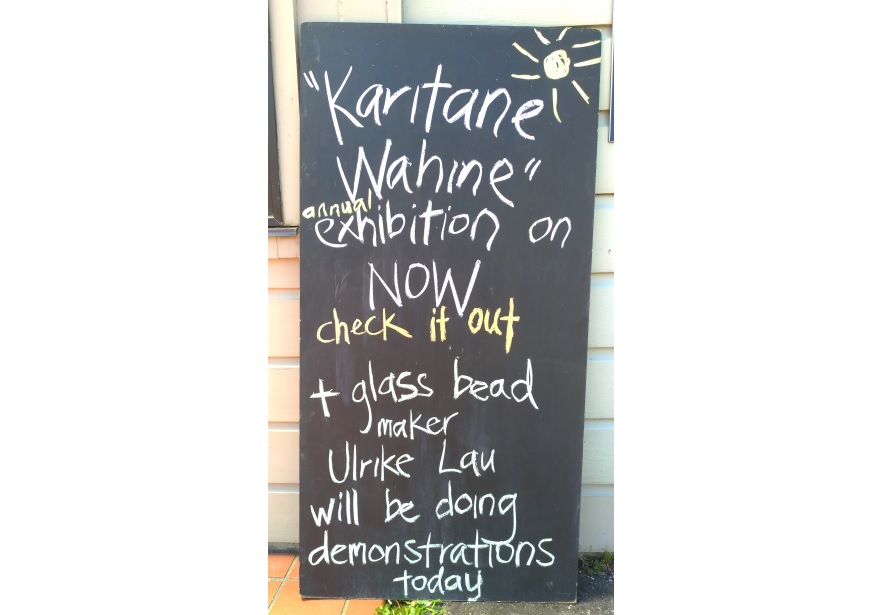 "Karitane
Wahine"
annual
exhibition on
NOW
check it out
+ glass bead
maker
Ulrike Lau
will be doing
demonstrations
today